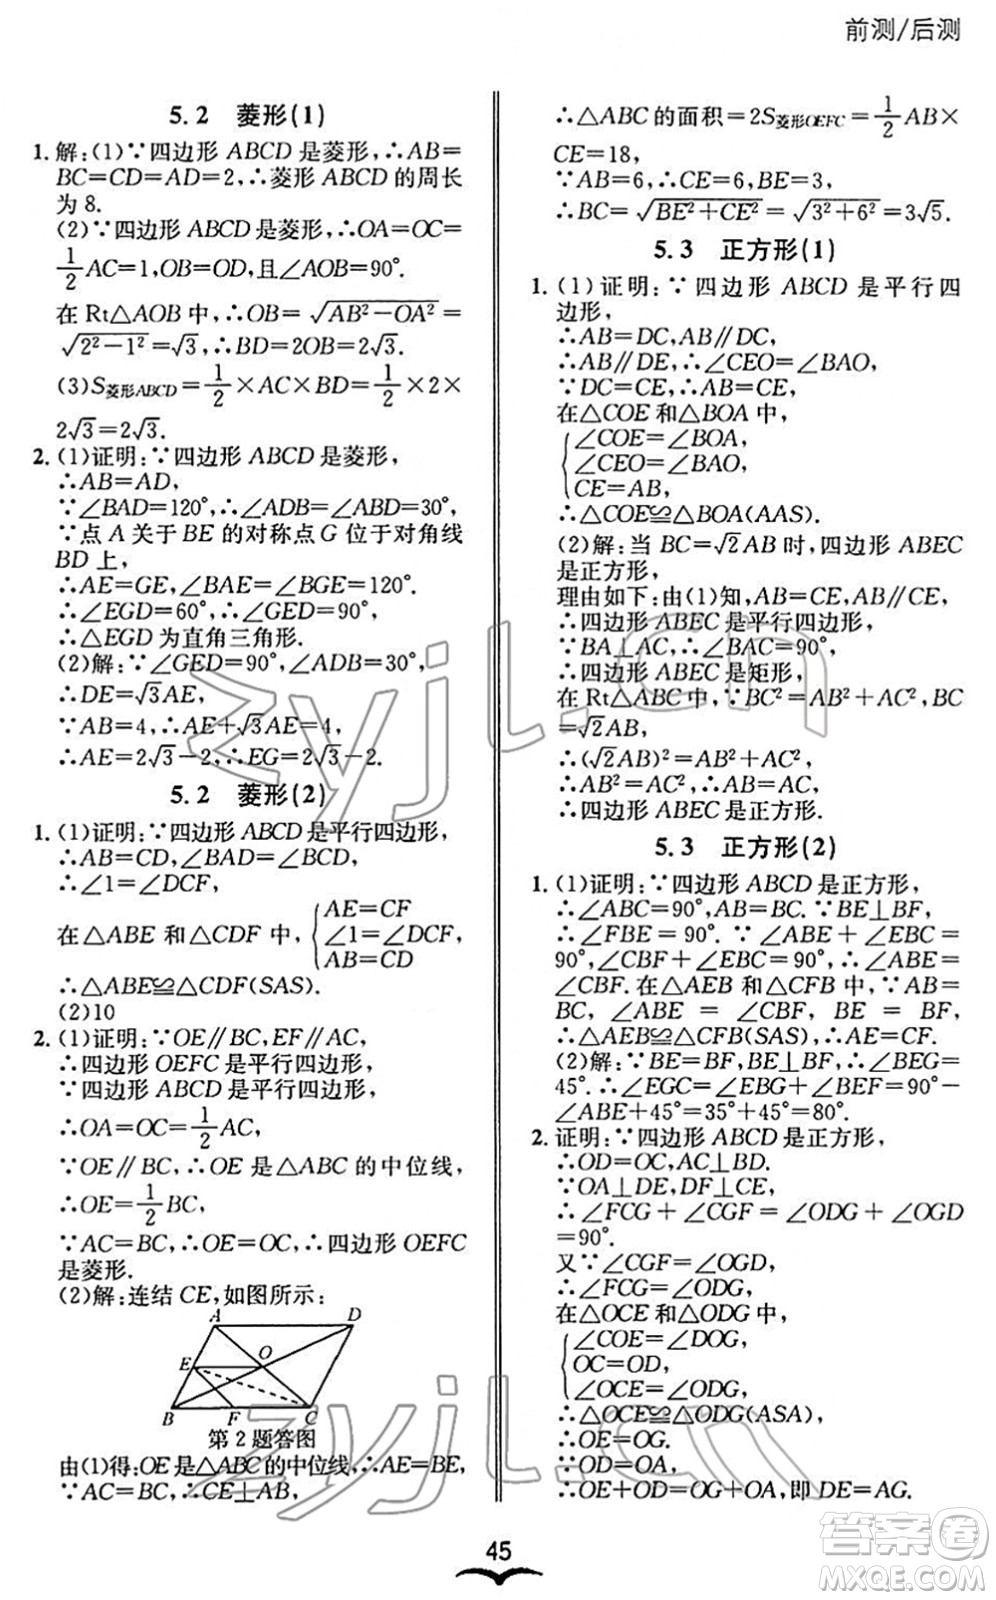 前测/后测
5.2 菱形(1)
1. 解:(1)∵四边形 ABCD 是菱形,∴AB=
BC=CD=AD=2,∴菱形 ABCD 的周长
为 8.
(2)∵四边形 ABCD 是菱形,∴OA=OC=
1/2 AC=1,OB=OD,且∠AOB=90°.
在 Rt△AOB 中,∴OB=√(AB²-OA²)=
√(2²-1²)=√3,∴BD=2OB=2√3.
(3)S菱形ABCD=1/2×AC×BD=1/2×2×
2√3=2√3.
2. (1)证明:∵四边形 ABCD 是菱形,
∴AB=AD,
∵∠BAD=120°,∴∠ADB=∠ABD=30°,
∵点 A 关于 BE 的对称点 G 位于对角线
BD 上,
∴AE=GE,∠BAE=∠BGE=120°,
∴∠EGD=60°,∴∠GED=90°,
∴△EGD 为直角三角形.
(2)解:∵∠GED=90°,∠ADB=30°,
∴DE=√3AE,
∵AB=4,∴AE+√3AE=4,
∴AE=2√3-2,∴EG=2√3-2.
5.2 菱形(2)
1. (1)证明:∵四边形 ABCD 是平行四边形,
∴AB=CD,∠BAD=∠BCD,
∴∠1=∠DCF,
在△ABE 和△CDF 中,{AE=CF
∠1=∠DCF,
AB=CD
∴△ABE≌△CDF(SAS).
(2)10
2. (1)证明:∵OE∥BC,EF∥AC,
∴四边形 OEFC 是平行四边形,
∵四边形 ABCD 是平行四边形,
∴OA=OC=1/2 AC,
∵OE∥BC,∴OE 是△ABC 的中位线,
∴OE=1/2 BC,
∵AC=BC,∴OE=OC,∴四边形 OEFC
是菱形.
(2)解:连结 CE,如图所示:
A D
E O
B F C
第 2 题答图
由(1)得:OE是△ABC的中位线,∴AE=BE,
∵AC=BC,∴CE⊥AB,
∴△ABC 的面积=2S菱形OEFC=1/2 AB×
CE=18,
∵AB=6,∴CE=6,BE=3,
∴BC=√(BE²+CE²)=√(3²+6²)=3√5.
5.3 正方形(1)
1. (1)证明:∵四边形 ABCD 是平行四
边形,
∴AB=DC,AB∥DC,
∴AB∥DE,∴∠CEO=∠BAO,
∵DC=CE,∴AB=CE,
在△COE 和△BOA 中,
{∠COE=∠BOA,
∠CEO=∠BAO,
CE=AB,
∴△COE≌△BOA(AAS).
(2)解:当 BC=√2AB 时,四边形 ABEC
是正方形,
理由如下:由(1)知,AB=CE,AB∥CE,
∴四边形 ABEC 是平行四边形,
∵BA⊥AC,∴∠BAC=90°,
∴四边形 ABEC 是矩形,
在 Rt△ABC 中,∵BC²=AB²+AC²,BC
=√2AB,
∴(√2AB)²=AB²+AC²,
∴AB²=AC²,∴AB=AC,
∴四边形 ABEC 是正方形.
5.3 正方形(2)
1. (1)证明:∵四边形 ABCD 是正方形,
∴∠ABC=90°,AB=BC.∵BE⊥BF,
∴∠FBE=90°. ∵∠ABE+∠EBC=
90°,∠CBF+∠EBC=90°,∴∠ABE=
∠CBF.在△AEB 和△CFB 中,∵AB=
BC, ∠ABE=∠CBF, BE=BF,
∴△AEB≌△CFB(SAS),∴AE=CF.
(2)解:∵BE=BF,BE⊥BF,∴∠BEG=
45°.∴∠EGC=∠EBG+∠BEF=90°-
∠ABE+45°=35°+45°=80°.
2. 证明:∵四边形 ABCD 是正方形,
∴OD=OC,AC⊥BD.
∵OA⊥DE,DF⊥CE,
∴∠FCG+∠CGF=∠ODG+∠OGD
=90°.
又∵∠CGF=∠OGD,
∴∠FCG=∠ODG,
在△OCE 和△ODG 中,
{∠COE=∠DOG,
OC=OD,
∠OCE=∠ODG,
∴△OCE≌△ODG(ASA),
∴OE=OG.
∵OD=OA,
∴OE+OD=OG+OA,即 DE=AG.
45
zyjl.cn
zyjl.cn
答案圈
MXQE.COM